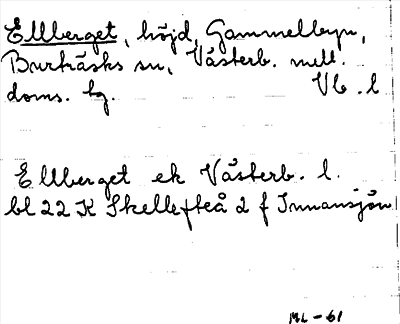 Ellberget, höjd, Gammelbyn,
Burträsks sn, Västerb. mell.
doms. hg. Vb. l
Ellberget ek Västerb. l.
bl 22 K Skellefteå 2 f Innansjön
ML-61